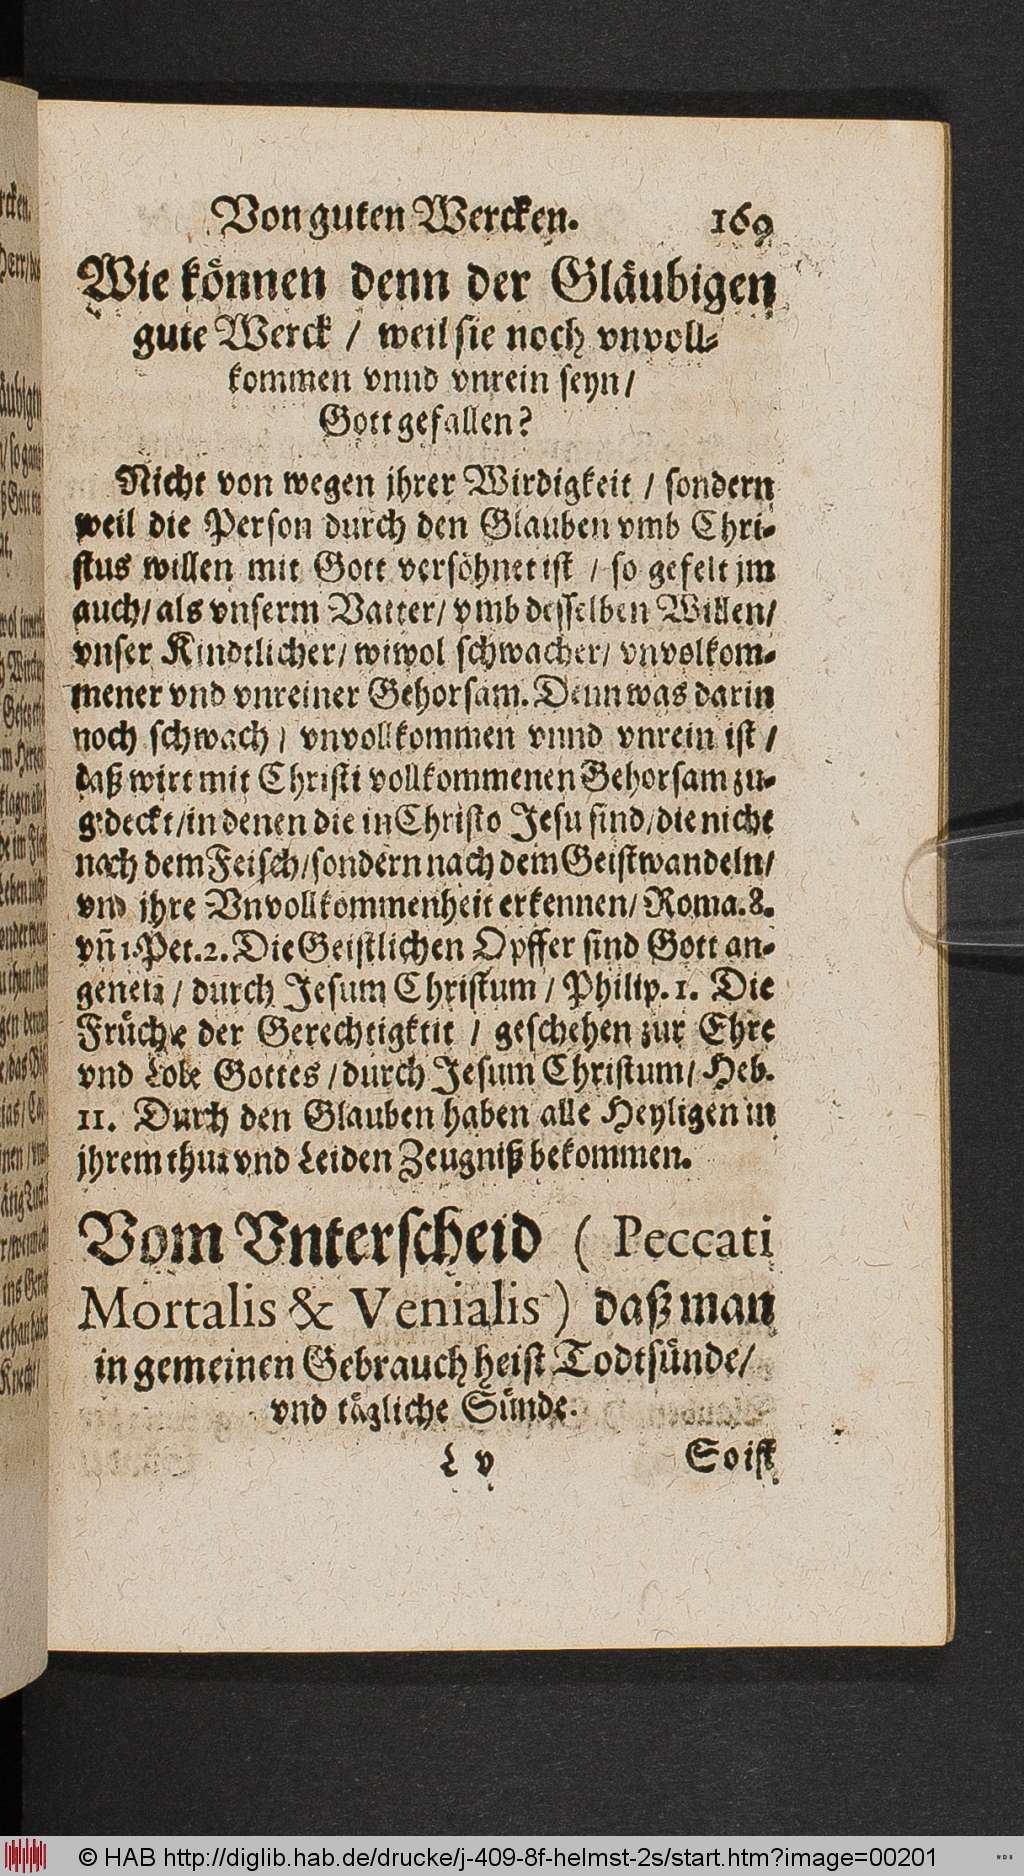 Von guten Wercken. 169
Wie können denn der Gläubigen
gute Werck / weil sie noch vnvoll-
kommen vnnd vnrein seyn /
Gott gefallen?
Nicht von wegen jhrer Wirdigkeit / sondern
weil die Person durch den Glauben vmb Chri-
stus willen mit Gott versöhnet ist / so gefelt jm
auch / als vnserm Vatter / vmb desselben Willen /
vnser Kindtlicher / wiwol schwacher / vnvolkom-
mener vnd vnreiner Gehorsam. Denn was darin
noch schwach / vnvollkommen vnnd vnrein ist /
daß wirt mit Christi vollkommenen Gehorsam zu-
gedeckt / in denen die in Christo Jesu sind / die nicht
nach dem Feisch / sondern nach dem Geist wandeln /
vnd jhre Vnvollkommenheit erkennen / Roma. 8.
vn̄ 1. Pet. 2. Die Geistlichen Opffer sind Gott an-
genem / durch Jesum Christum / Philip. 1. Die
Früchte der Gerechtigktit / geschehen zur Ehre
vnd Lobe Gottes / durch Jesum Christum / Heb.
11. Durch den Glauben haben alle Heyligen in
jhrem thun vnd Leiden Zeugniß bekommen.
Vom Vnterscheid ( Peccati
Mortalis & Venialis ) daß man
in gemeinen Gebrauch heist Todtsünde /
vnd tägliche Sünde.
L v So ist
© HAB http://diglib.hab.de/drucke/j-409-8f-helmst-2s/start.htm?image=00201